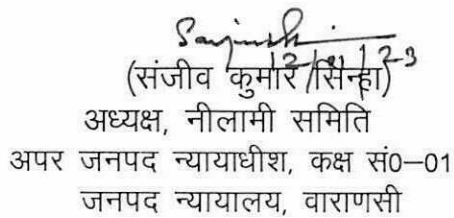 (संजीव कुमार सिन्हा)
अध्यक्ष, नीलामी समिति
अपर जनपद न्यायाधीश, कक्ष सं0–01
जनपद न्यायालय, वाराणसी